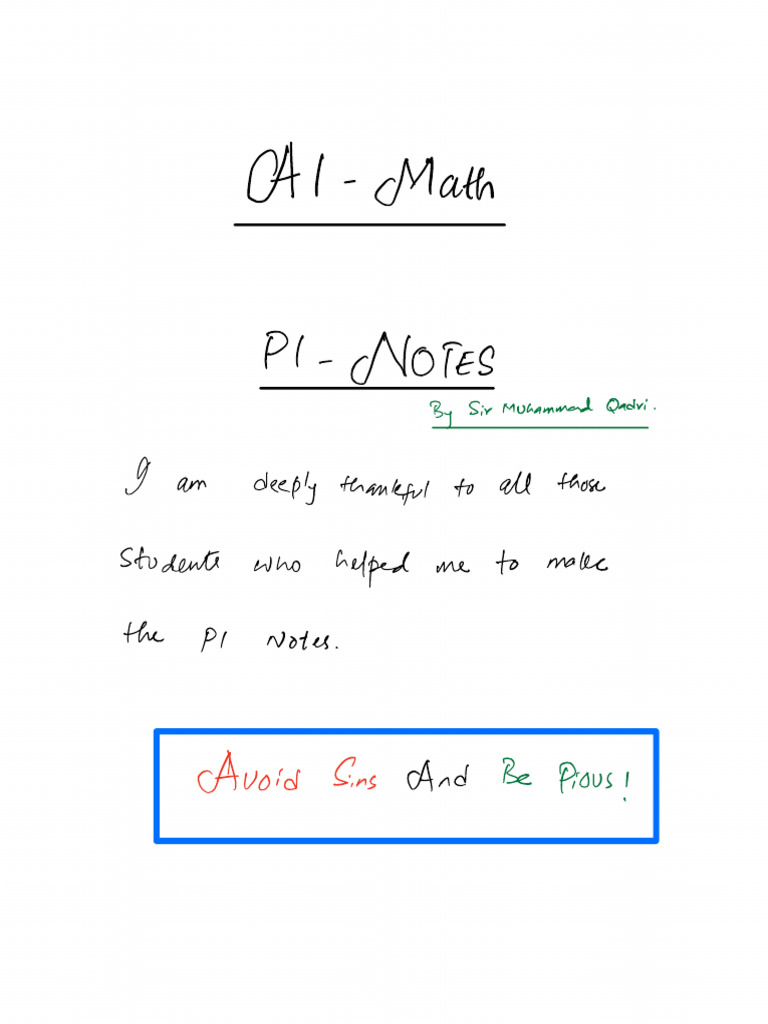 A1 - Math
P1 - NOTES
By Sir Muhammad Qadri.
I am deeply thankful to all those
Students who helped me to make
the P1 Notes.
Avoid Sins And Be Pious!